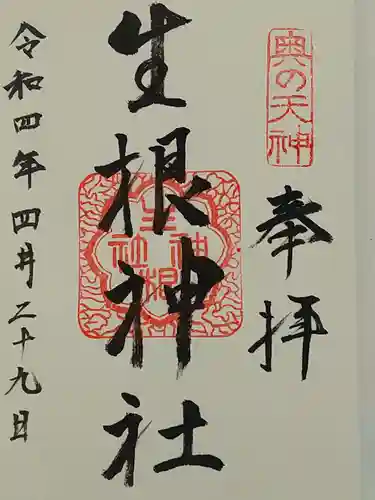 奥の天神
奉拝
生根神社
生根神社
令和四年四月二十九日